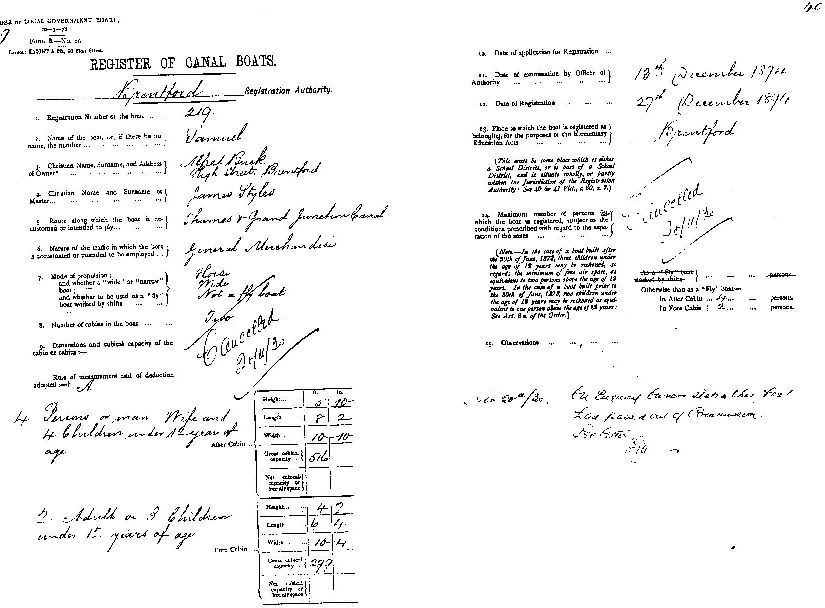 ORDER OF LOCAL GOVERNMENT BOARD,
Form
REGISTER OF CANAL BOATS.
Brentford Registration Authority.
1. Registration Number of the boat. 219
2. Name of the boat, or, if there be no name, the number
Samuel
3. Christian Name, Surname, and Address of Owner
High Street, Brentford
4. Christian Name and Surname of Master
James Styles
5. Route along which the boat is accustomed or intended to ply
Thames & Grand Junction Canal
6. Nature of the traffic in which the boat is accustomed or intended to be employed
General Merchandise
7. Mode of propulsion;
and whether a "wide" or "narrow" boat;
and whether to be used as a "fly" boat worked by shifts
Horse
Wide
Not a fly boat
8. Number of cabins in the boat Two
9. Dimensions and cubical capacity of the cabin or cabins:—
Cancelled
20/11/30
Rule of measurement and of deduction adopted:— A
4 Persons or man Wife and
4 Children under 12 years of
age
After Cabin
ft. in.
Height 5 10
Length 8 2
Width 10 10
Gross cubical capacity 516
Net cubical capacity or free air space
2 Adults or 3 Children
under 12 years of age
Fore Cabin
Height 4 2
Length 6 4
Width 10 4
Gross cubical capacity 297
Net cubical capacity or free air space
10. Date of application for Registration
11. Date of examination by Officer of Authority
13th December 1894
12. Date of Registration 27th December 1894
13. Place to which the boat is registered as belonging, for the purposes of the Elementary Education Acts
Brentford
(This must be some place which is either
a School District, or is part of a School
District, and is situate wholly, or partly
within the Jurisdiction of the Registration
Authority: See 40 & 41 Vict., c. 60, s. 7.)
14. Maximum number of persons for which the boat is registered, subject to the conditions prescribed with regard to the separation of the sexes
Cancelled
20/11/30
[Note.—In the case of a boat built after
the 30th June, 1878, three children under
the age of 12 years may be reckoned, as
regards the minimum of free air space, as
equivalent to two persons above the age of 12
years. In the case of a boat built prior to
the 30th June, 1878, two children under
the age of 12 years may be reckoned as equivalent
to one person above the age of 12 years:
See Art. of the Order.]
As a "Fly" boat persons.
Otherwise than as a "Fly" boat—
In After Cabin 4 persons.
In Fore Cabin 2 persons.
15. Observations